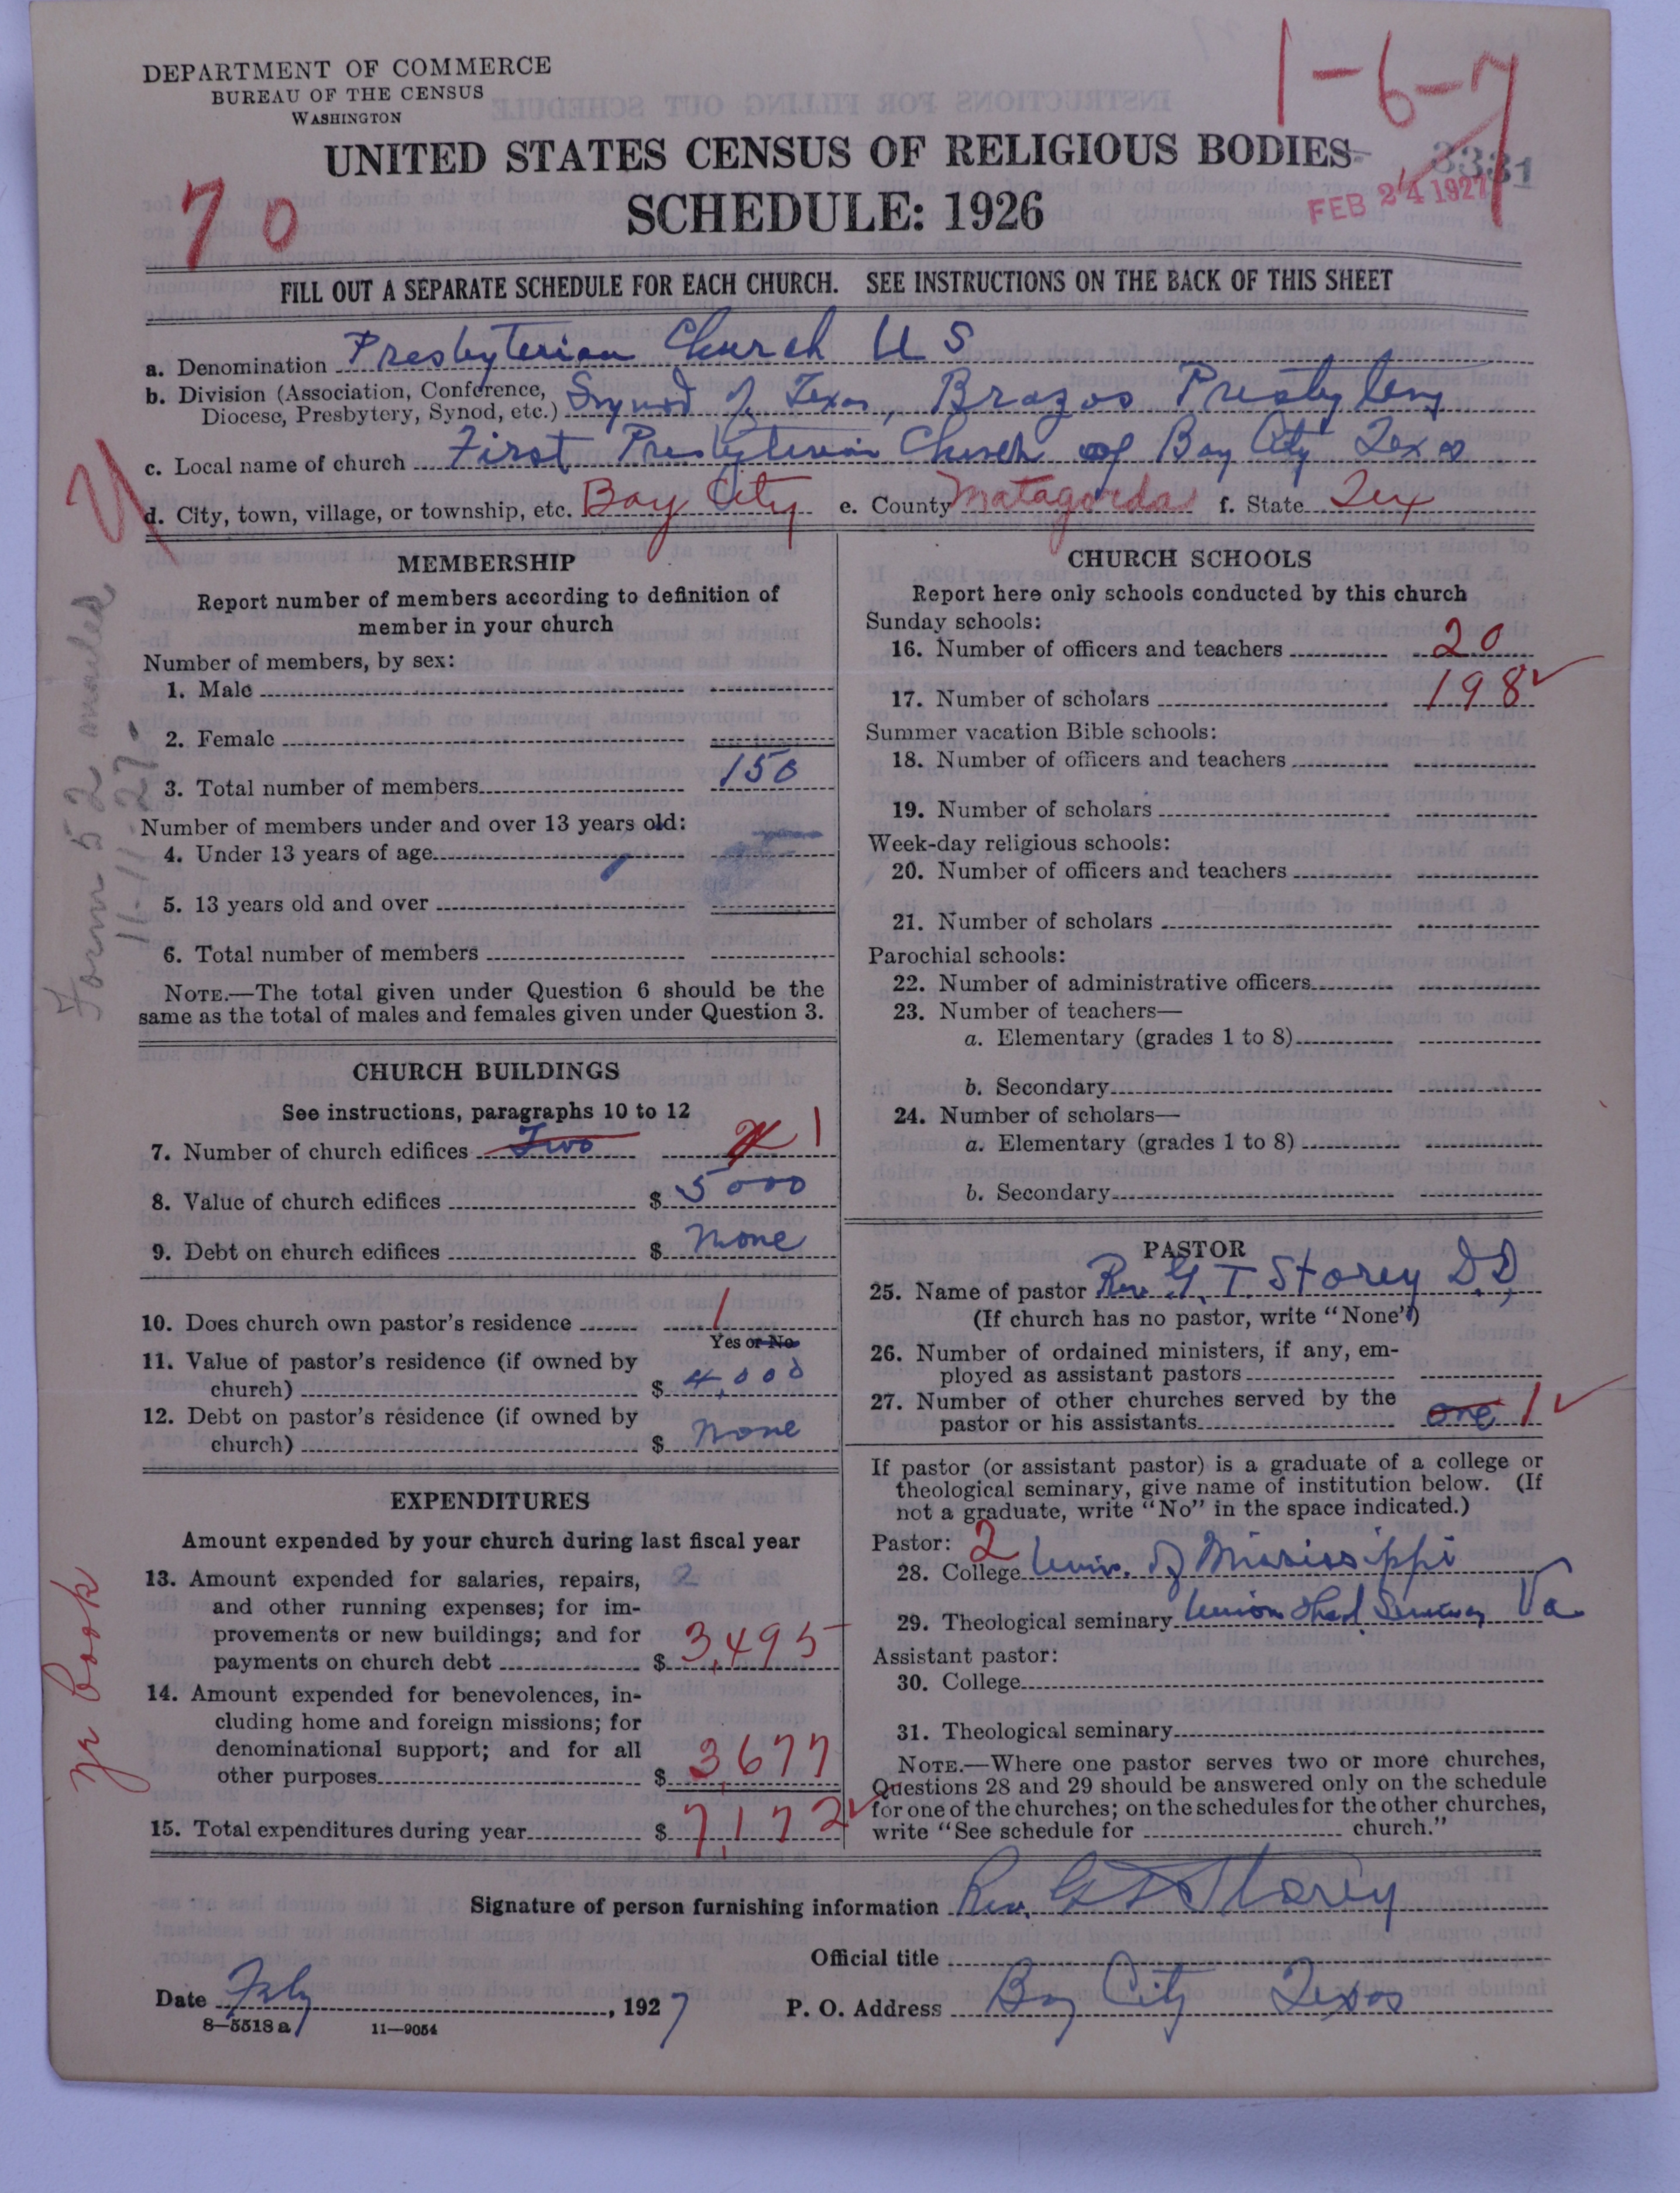 DEPARTMENT OF COMMERCE
BUREAU OF THE CENSUS
WASHINGTON
1-6-7
UNITED STATES CENSUS OF RELIGIOUS BODIES
3331
SCHEDULE: 1926
FEB 24 1927
70
FILL OUT A SEPARATE SCHEDULE FOR EACH CHURCH. SEE INSTRUCTIONS ON THE BACK OF THIS SHEET
a. Denomination Presbyterian Church U S
b. Division (Association, Conference, Diocese, Presbytery, Synod, etc.) Synod of Texas, Brazos Presbytery
c. Local name of church First Presbyterian Church of Bay City Texas
d. City, town, village, or township, etc. Bay City e. County Matagorda f. State Tex
Form 52 mailed
11-11-27-
MEMBERSHIP
Report number of members according to definition of
member in your church
Number of members, by sex:
1. Male
2. Female
3. Total number of members 150
Number of members under and over 13 years old:
4. Under 13 years of age
5. 13 years old and over
6. Total number of members
NOTE.—The total given under Question 6 should be the
same as the total of males and females given under Question 3.
CHURCH BUILDINGS
See instructions, paragraphs 10 to 12
7. Number of church edifices Two 1
8. Value of church edifices $ 5000
9. Debt on church edifices $ None
10. Does church own pastor's residence 1
Yes or No
11. Value of pastor's residence (if owned by
church) $ 4,000
12. Debt on pastor's residence (if owned by
church) $ None
EXPENDITURES
Amount expended by your church during last fiscal year
13. Amount expended for salaries, repairs,
and other running expenses; for im-
provements or new buildings; and for
payments on church debt $ 3,495
14. Amount expended for benevolences, in-
cluding home and foreign missions; for
denominational support; and for all
other purposes $ 3,677
15. Total expenditures during year $ 7,172
yr book
CHURCH SCHOOLS
Report here only schools conducted by this church
Sunday schools:
16. Number of officers and teachers 20
17. Number of scholars 198
Summer vacation Bible schools:
18. Number of officers and teachers
19. Number of scholars
Week-day religious schools:
20. Number of officers and teachers
21. Number of scholars
Parochial schools:
22. Number of administrative officers
23. Number of teachers—
a. Elementary (grades 1 to 8)
b. Secondary
24. Number of scholars—
a. Elementary (grades 1 to 8)
b. Secondary
PASTOR
25. Name of pastor Rev. G. T. Storey D.D,
(If church has no pastor, write "None")
26. Number of ordained ministers, if any, em-
ployed as assistant pastors
27. Number of other churches served by the
pastor or his assistants one 1
If pastor (or assistant pastor) is a graduate of a college or
theological seminary, give name of institution below. (If
not a graduate, write "No" in the space indicated.)
Pastor: 2
28. College Univ. of Mississippi
29. Theological seminary Union Theol Seminary Va
Assistant pastor:
30. College
31. Theological seminary
NOTE.—Where one pastor serves two or more churches,
Questions 28 and 29 should be answered only on the schedule
for one of the churches; on the schedules for the other churches,
write "See schedule for church."
Signature of person furnishing information Rev. G T Storey
Official title
Date Feby, 1927 P. O. Address Bay City Texas
8—5518 a 11—9054